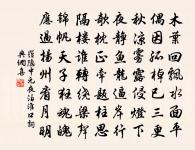 木葉回飄水面平
偶因孤棹已三更
秋涼霧露侵燈下
夜靜魚龍逼岸行
欹枕正牽題柱思
隔樓誰轉繞梁聲
錦帆天子狂魂魄
應過揚州看月明
羅隱中元夜泊淮口詞
典網集